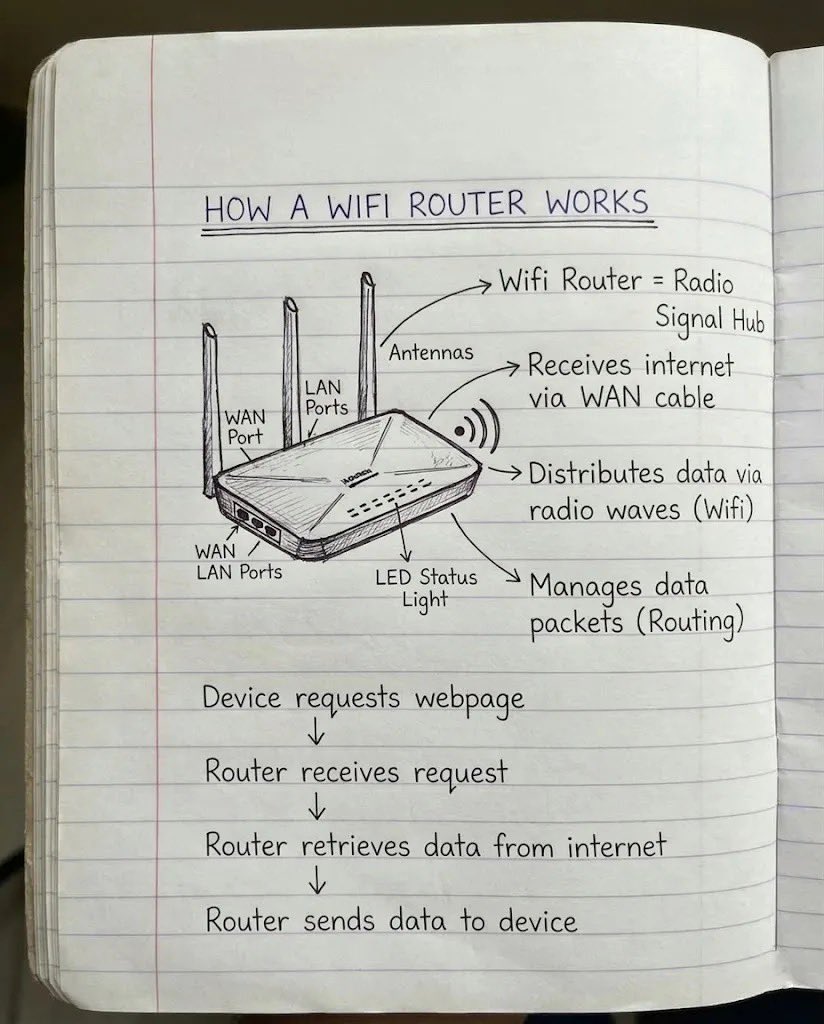 HOW A WIFI ROUTER WORKS
Wifi Router = Radio
Signal Hub
Antennas
Receives internet
via WAN cable
LAN
Ports
WAN
Port
Distributes data via
radio waves (Wifi)
WAN
LAN Ports
LED Status
Light
Manages data
packets (Routing)
Device requests webpage
↓
Router receives request
↓
Router retrieves data from internet
↓
Router sends data to device